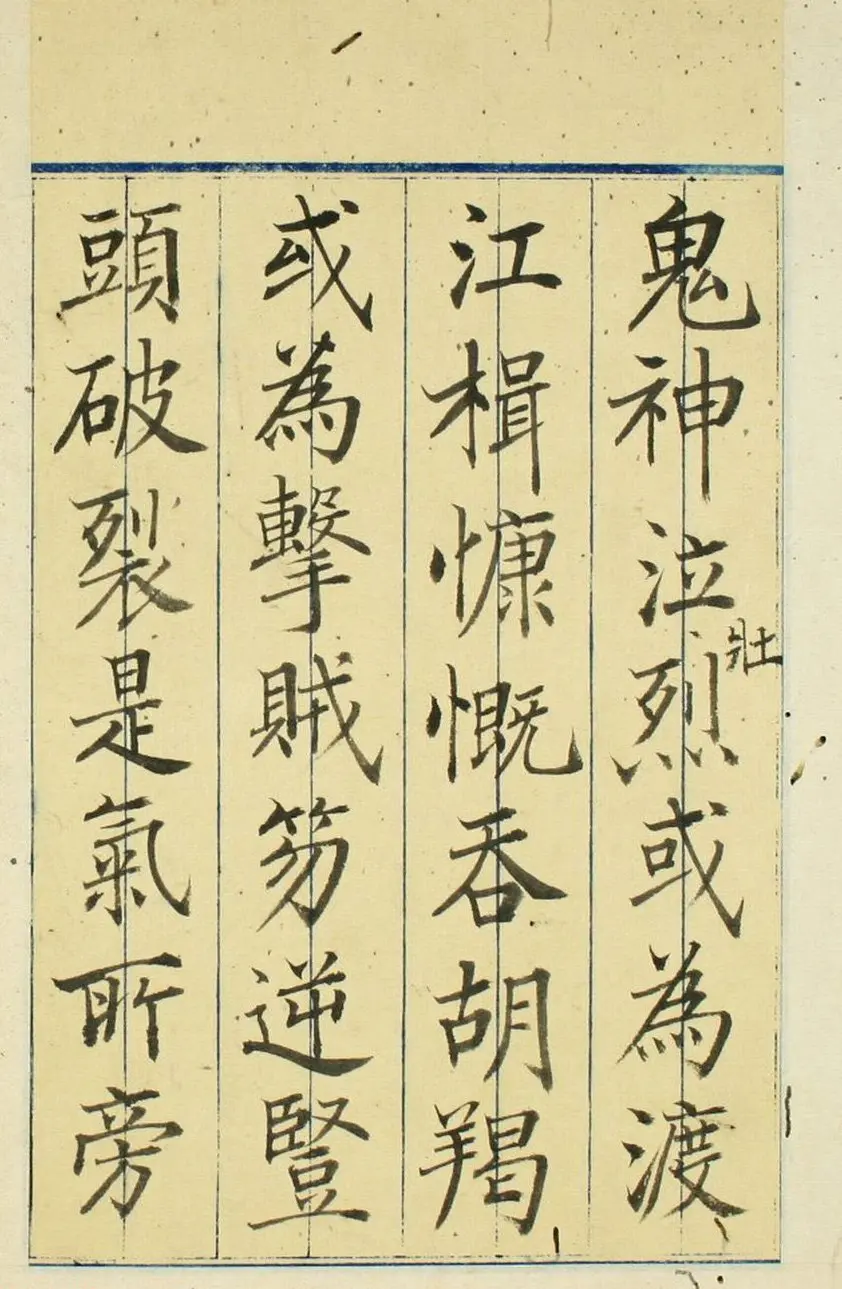 鬼神泣壯烈或為渡
江楫慷慨吞胡羯
或為擊賊笏逆豎
頭破裂是氣所旁